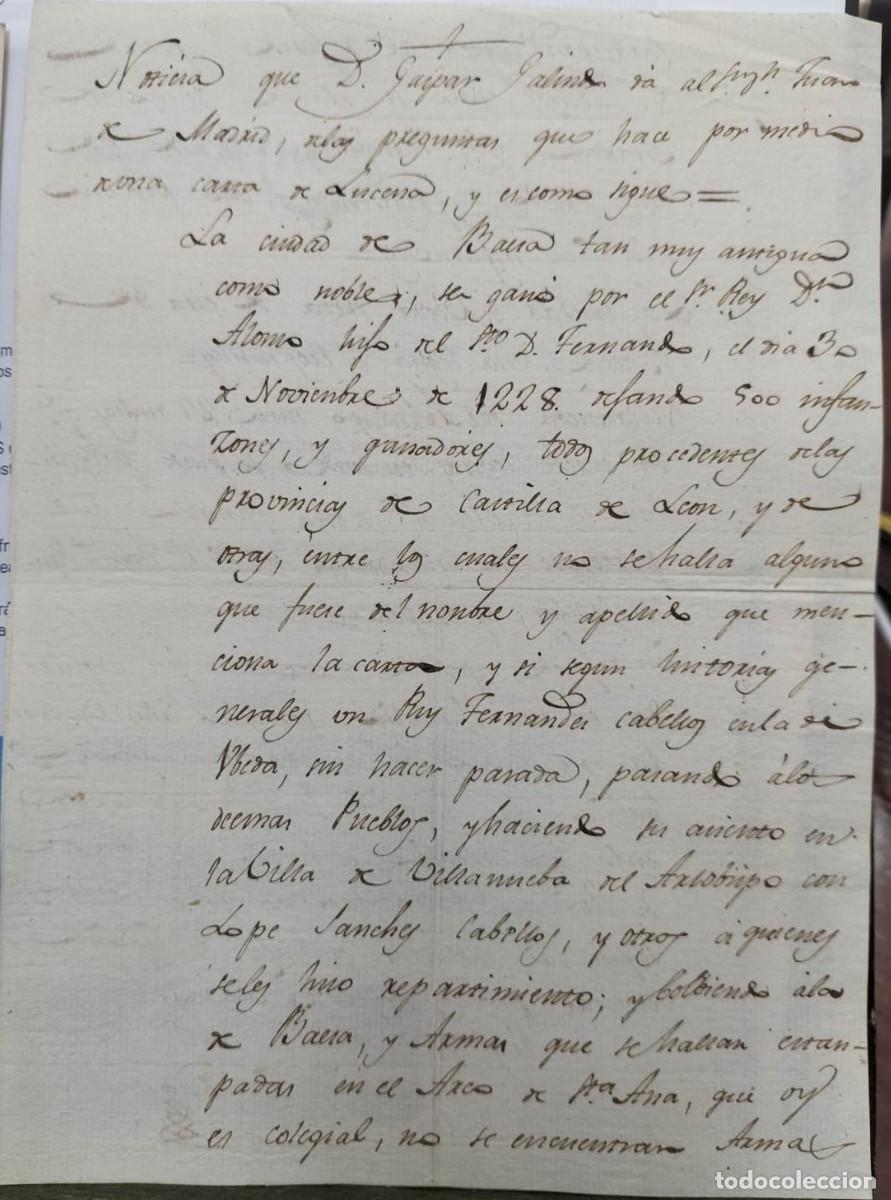 Noticia que D. Gaspar Galindo dá al Juan
de Madrid, delas preguntas que hace por medio
de una carta de Lucena, y es como sigue=
La ciudad de Baesa tan muy antigua
como noble, se ganó por el Sr. Rey Dn.
Alonso hijo del Sto. D. Fernando, el dia 30
de Noviembre de 1228. dejando 500 infan-
zones, y ganadores, todos procedentes delas
provincias de Castilla de Leon, y de
otras, entre los cuales no se halla alguno
que fuese del nonbre y apellido que men-
ciona la carta, y si segun historias ge-
nerales un Ruy Fernandes Cabellos en la de
Ubeda, sin hacer parada, pasando álos
demas Pueblos, y haciendo su asiento en
la Villa de Villanueba del Arzobispo con
Lope Sanches Cabellos, y otros á quienes
seles hizo repartimiento; y bolbiendo ála
de Baesa, y Armas que se hallan estan-
padas en el Arco de Sta. Ana, que oy
es colegial, no se encuentran Armas
todocoleccion